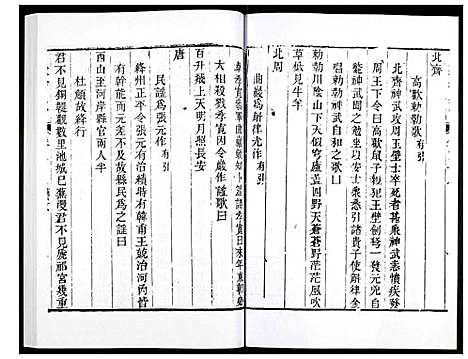 北齊
高歡勅勒歌有引
北齊神武攻周玉壁士卒死者甚衆神武恚憤疾發
周王下令曰高歡鼠子親犯玉壁劍弩一發元兇自
斃神武聞之勉坐以安士衆悉引諸貴使斛律金
唱勅勒神武自和之歌曰
勅勒川陰山下天似穹廬蓋四野天蒼蒼野茫茫風吹
草低見牛羊
北周
曲巖爲斛律光作有引
韋孝寬參軍曲巖頗知卜筮謂孝寬曰來年東朝必
大相殺戮孝寬因令巖作謠歌曰
百升飛上天明月照長安
唐
民謠爲張元作有引
絳州正平令張元有治積時有韓甫王兢治河中皆
有幹能而元不戢下故縣民爲之謠曰
西山至河岸縣官兩人半
杜顗故絳行
君不見銅鞮觀數里池城已蕪漫君不見虒祁宮幾重